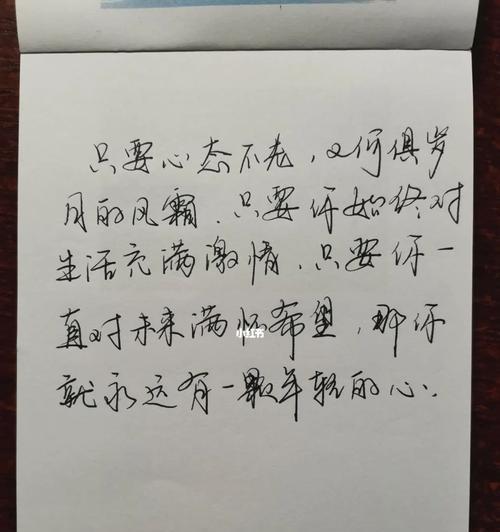 只要心态不老，又何俱岁
月的风霜．只要你始终对
生活充满激情．只要你一
直对未来满怀希望，那你
就永远有一颗年轻的心．
小红书